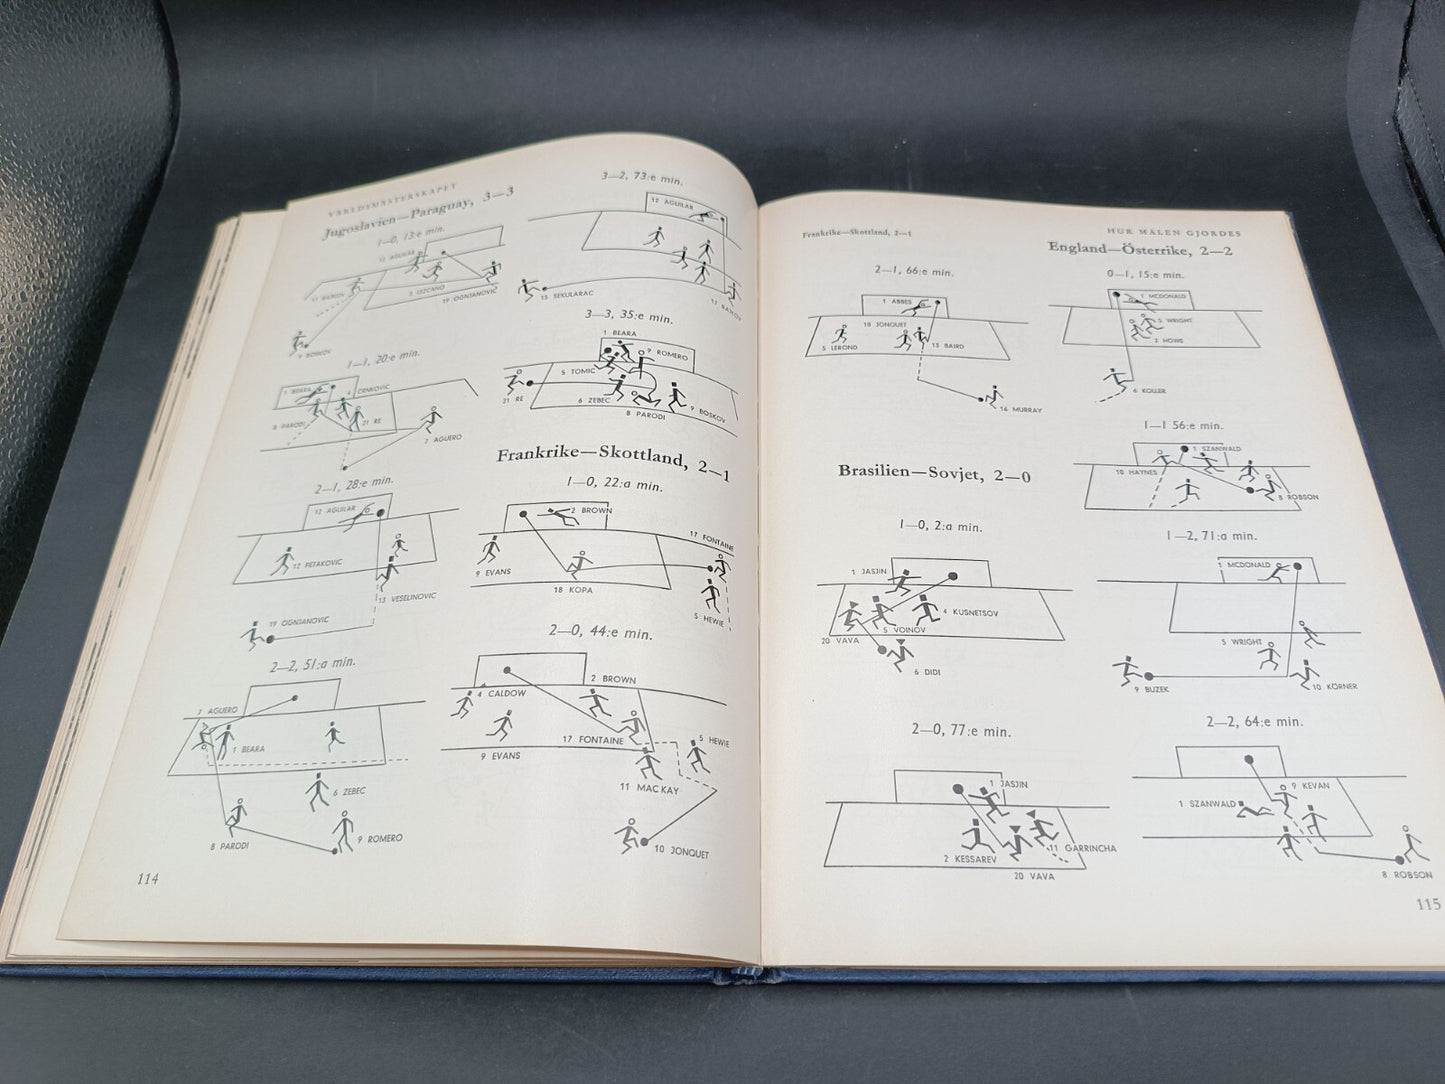 VÄRLDSMÄSTERSKAPET
Jugoslavien—Paraguay, 3—3
1—0, 13:e min.
12 AGUILAR
11 RAJKOV
3 LEZCANO
19 OGNJANOVIĆ
9 BOSKOV
1—1, 20:e min.
1 BEARA
CRNKOVIC
8 PARODI
21 RE
7 AGUERO
2—1, 28:e min.
12 AGUILAR
12 PETAKOVIC
13 VESELINOVIC
19 OGNJANOVIC
2—2, 51:a min.
7 AGUERO
1 BEARA
6 ZEBEC
8 PARODI
9 ROMERO
114
3—2, 73:e min.
12 AGUILAR
15 SEKULARAC
11 RAJKOV
3—3, 35:e min.
1 BEARA
9 ROMERO
5 TOMIC
21 RE
6 ZEBEC
8 PARODI
9 BOSKOV
Frankrike—Skottland, 2—1
1—0, 22:a min.
2 BROWN
17 FONTAINE
9 EVANS
18 KOPA
5 HEWIE
2—0, 44:e min.
4 CALDOW
2 BROWN
17 FONTAINE
5 HEWIE
9 EVANS
11 MAC KAY
10 JONQUET
Frankrike—Skottland, 2—1
2—1, 66:e min.
1 ABBES
10 JONQUET
5 LEROND
15 BAIRD
16 MURRAY
Brasilien—Sovjet, 2—0
1—0, 2:a min.
1 JASJIN
4 KUSNETSOV
5 VOINOV
20 VAVA
6 DIDI
2—0, 77:e min.
1 JASJIN
11 GARRINCHA
2 KESSAREV
20 VAVA
HUR MÅLEN GJORDES
England—Österrike, 2—2
0—1, 15:e min.
1 MCDONALD
3 WRIGHT
2 HOWE
6 KOLLER
1—1 56:e min.
1 SZANWALD
10 HAYNES
8 ROBSON
1—2, 71:a min.
1 MCDONALD
5 WRIGHT
9 BUZEK
10 KÖRNER
2—2, 64:e min.
9 KEVAN
1 SZANWALD
8 ROBSON
115